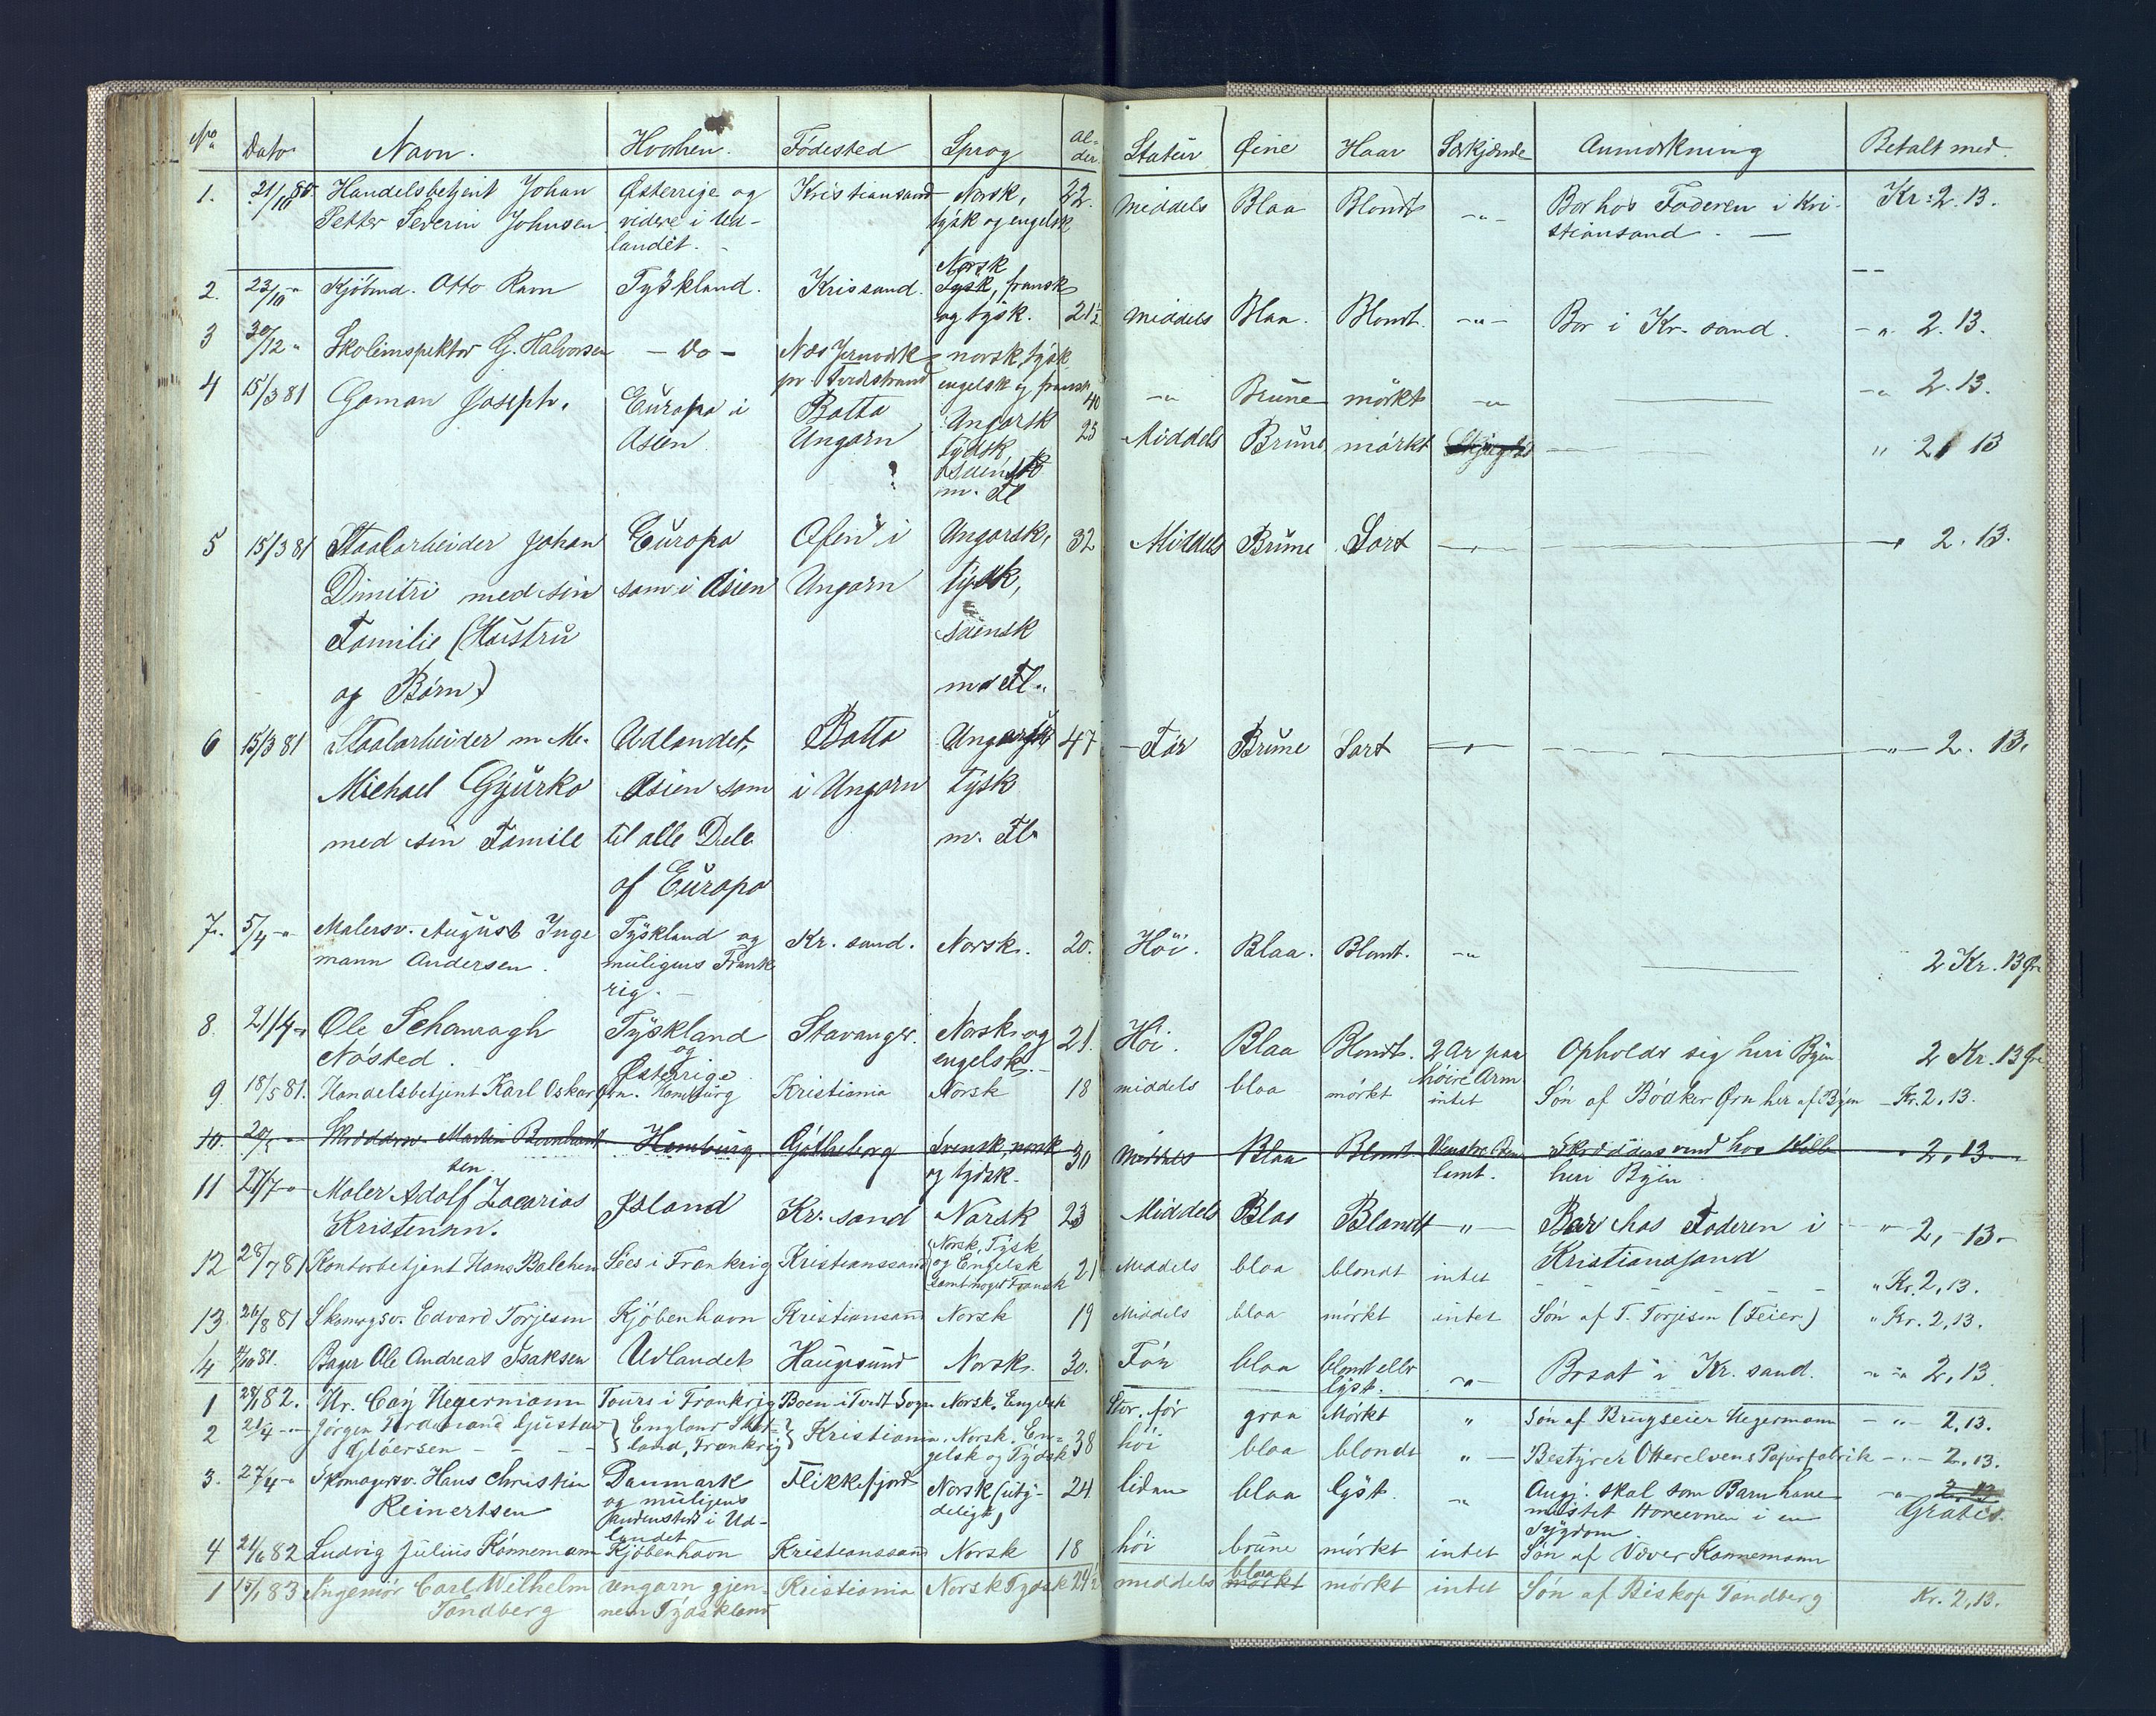 No Dato Navn. Hvorhen. Födested Sprog Al-der Statur Øine Haar Særkjende Anmærkning Betalt med.
1. 21/10 80. Handelsbetjent Johan Østerrige og Kristiansand Norsk, 22. Middels Blaa Blondt -„- Bor hos Faderen i Kri- Kr: 2. 13.
Petter Severin Johnsen videre i Ud- tysk og engelsk stiansand. —
landet. -
Norsk
2. 23/10 -„ Kjöbmd. Otto Ravn Tyskland. Krissand. Tysk, fransk
og tysk. 21½ Middels Blaa. Blondt. -„- Bor i Kr. sand. -„ 2. 13.
3 30/12 „ Skoleinspektör G. Halvorsen - Do - Næs Jernværk norsk, tysk
pr. Tvedestrand engelsk og fransk 40 -„ Brune mörkt -„ -„ 2. 13.
4 15/3 81 Goman Joseph. Europa i Batta Ungarsk 25 Middels Brune mörkt „ 2 13
Asien Ungarn tydsk,
? svensk
m. Fl
5 15/3 81 Staalarbeider Johan Europa Ofen i Ungarsk, 32 Middels Brune Sort 2. 13.
Dimitri med sin som i Asien Ungarn tysk,
Familie (Hustru svensk
og Börn) md Fl.
6 15/3 81 Staalarbeider m. M. Udlandet, Batta Ungarsk 47 - Før Brune Sort „ 2. 13.
Michael Gyurko Asien som i Ungarn tysk
med sin Famile til alle Dele m. Fl.
af Europa
7. 5/4 -„ Malersv. August Inge Tyskland og Kr. sand. Norsk. 20. Höi. Blaa. Blondt. -„ 2 Kr. 13 Øre
mann Andersen. muligens Frank
rig. -
8. 21/4 -„ Ole Schanragh Tyskland Stavanger. Norsk og 21. Höi. Blaa Blondt. 2 Ar paa Opholder sig her i Byen 2 Kr. 13 Øre
Nøsted. og engelsk. höire Arm
Østerrige
9. 18/5 81. Handelsbetjent Karl Oskar Ørn. Hamburg Kristiania Norsk 18 middels blaa mörkt intet Sön af Bödker Ørn her af Byen Kr. 2,13.
10. Skræddersv. Martin Bernhard Hamburg Götheborg Svensk, norsk 30 Middels Blaa Blondt Venstre Ben Skræddersvend hos 2,13
sen. og tydsk. lamt. her i Byen
11 27/7 -„ Maler Adolf Zacarias Island Kr. sand Norsk 23 Middels Blaa Blondt -„- Bor hos Faderen i „ 2, -13-
Kristensen. Kristiansand
12 28/7 81 Kontorbetjent Hans Balchen Sées i Frankrig Kristianssand Norsk, Tysk og Engelsk samt noget Fransk 21 Middels blaa blondt intet - - „ Kr. 2,13.
13. 26/8 81 Skomagsv. Edvard Torjesen Kjöbenhavn Kristiansand Norsk 19 Middels blaa mörkt intet Sön af T. Torjesen (Feier) „ Kr. 2,13.
14 81. Bager Ole Andreas Isaksen Udlandet Haugesund Norsk. 30. För blaa blondt eller lyst. -„- Bosat i Kr. sand. -„- 2,13
1 82. Hr. Carj Hegermann Tours i Frankrig Boen i Tvedt Sogn Norsk, Engelsk Stor, för graa Mörkt „ Sön af Brugseier Hegermann -„- 2,13.
2 21/4 -„ Jörgen Ferdinand Gustav England Skot- Kristiania. Norsk, En- 38 höi blaa blondt „ - Bestyrer Otterelvens Papirfabrik -„- 2,13.
Gjöersen - - - land, Frankrig gelsk og Tydsk
3. 27/4 -„ Skomagersv. Hans Christian Danmark Flekkefjord Norsk (uty- 24 liden blaa lyst. „ Angj. skal som Barn have -„- 2 13
Reinertsen og muligens deligt) mistet Horeevnen i en Gratis.
andensteds i Ud- Sygdom
landet
4 21/6 82 Ludvig Julius Könnemann Kjöbenhavn Kristianssand Norsk 18 höi brune mörkt intet Sön af Væver Könnemann
1 15/1 83 Ingeniör Carl Wilhelm Ungarn gjen- Kristiania Norsk Tydsk 24½ middels blaa mörkt mörkt intet Sön af Biskop Tandberg Kr. 2,13.
Tandberg nem Tydskland